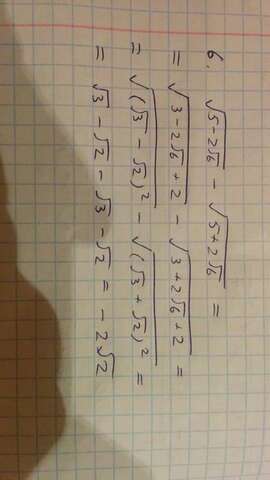 6. √(5-2√6) - √(5+2√6) =
= √(3-2√6+2) - √(3+2√6+2) =
= √((√3 - √2)²) - √((√3 + √2)²) =
= √3 - √2 - √3 - √2 = - 2√2